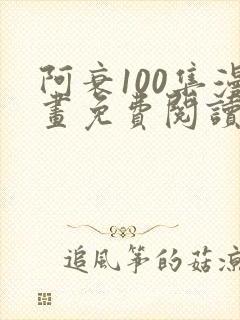 阿衰100集漫
畫免費閱讀
追風箏的菇涼